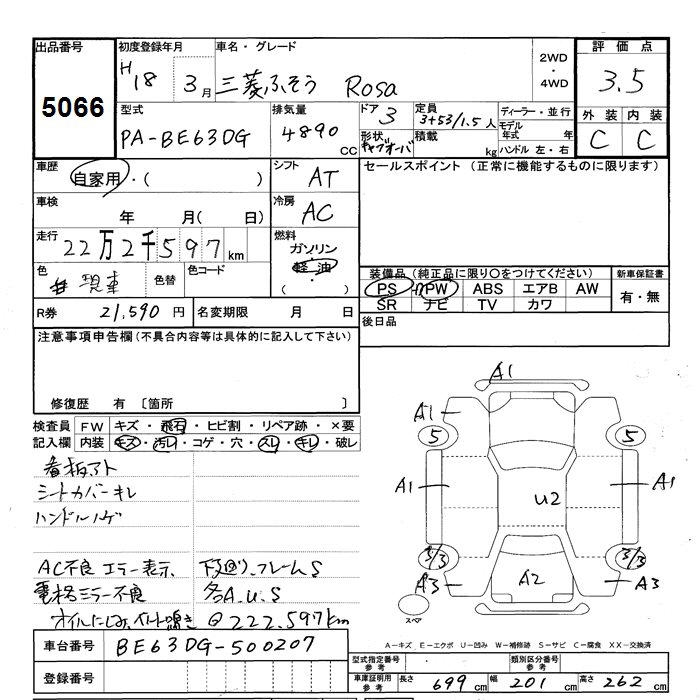 出品番号 初度登録年月 車名・グレード 2WD ・ 4WD 評価点
5066 H18 3月 三菱ふそう Rosa 3.5
型式 排気量 ドア 3 定員 3+53/1.5人 ディーラー・並行 外装 内装
PA-BE63DG 4890 CC 形状 キャブオーバ 積載 kg モデル年式 年 ハンドル 左・右 C C
車歴 自家用・( ) シフト AT セールスポイント (正常に機能するものに限ります)
車検 年 月(日) 冷房 AC
走行 22万2千597km 燃料 ガソリン・軽油・( )
色 現車 色替 色コード 装備品 (純正品に限り○をつけてください) 新車保証書
PS PW ABS エアB AW 有・無
R券 21,590円 名変期限 月 日 SR ナビ TV カワ
注意事項申告欄(不具合内容等は具体的に記入して下さい) 後日品
修復歴 有 〔箇所 〕
検査員記入欄 FW キズ・飛石・ヒビ割・リペア跡・×要
内装 キズ・汚レ・コゲ・穴・スレ・キレ・破レ
看板アト
シートカバーキレ
ハンドルハゲ
AC不良 エラー表示 下廻り、フレームS
電格ミラー不良 各A.U.S
オイルにじみ、ベルト鳴き @222,597km
A1
A1
5 5
A1 U2 A1
5/3 5/3
A3 A2 A3
スペア
車台番号 BE63DG-500207 A－キズ E－エクボ U－凹み W－補修跡 S－サビ C－腐食 XX－交換済
登録番号 型式指定番号 参考 類別区分番号 参考
車庫証明用 参考 長さ 699cm 幅 201cm 高さ 262cm